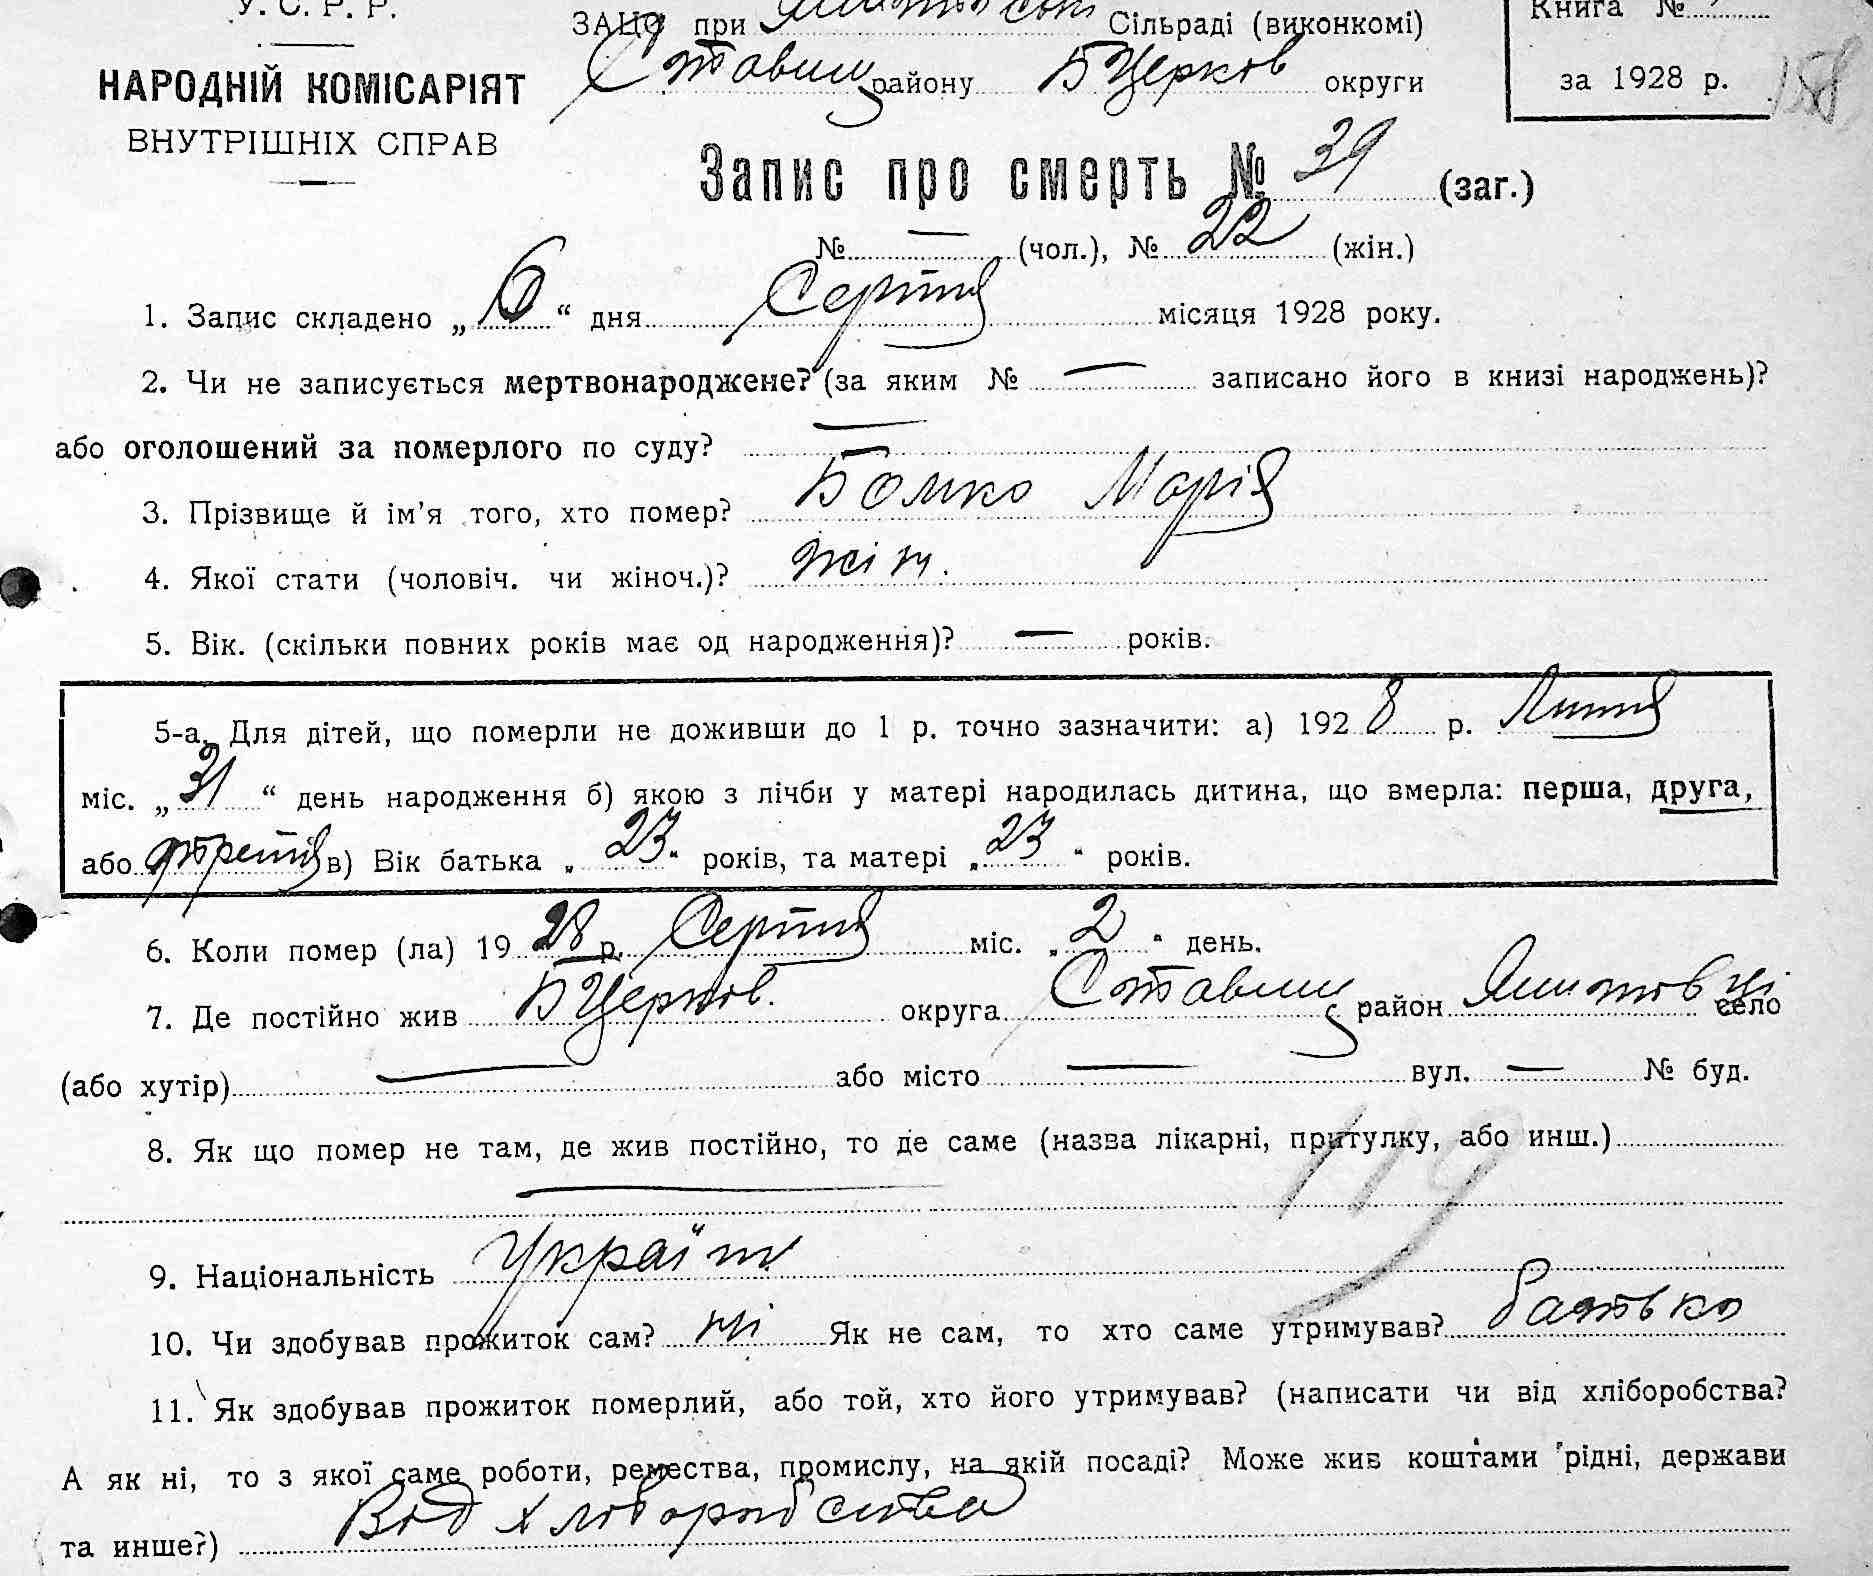 У. С. Р. Р.
НАРОДНІЙ КОМІСАРІЯТ
ВНУТРІШНІХ СПРАВ
ЗАЦС при Сільраді (виконкомі)
Ставищ району БЦерков округи
Книга №
за 1928 р.
158
Запис про смерть № 39 (заг.)
№ — (чол.), № 22 (жін.)
1. Запис складено „ 6 “ дня Серпня місяця 1928 року.
2. Чи не записується мертвонароджене? (за яким № — записано його в книзі народжень)?
або оголошений за померлого по суду? —
3. Прізвище й ім'я того, хто помер? Бомко Марія
4. Якої стати (чоловіч. чи жіноч.)? жін.
5. Вік. (скільки повних років має од народження)? — років.
5-а. Для дітей, що померли не доживши до 1 р. точно зазначити: а) 192 8 р. Липня
міс. „ 31 “ день народження б) якою з лічби у матері народилась дитина, що вмерла: перша, друга,
або третя в) Вік батька „ 23 “ років, та матері „ 23 “ років.
6. Коли помер (ла) 19 28 р. Серпня міс. „ 2 “ день.
7. Де постійно жив БЦерков. округа Ставищ район село
(або хутір) — або місто — вул. — № буд.
8. Як що помер не там, де жив постійно, то де саме (назва лікарні, притулку, або инш.)
—
119
9. Національність Україн.
10. Чи здобував прожиток сам? ні Як не сам, то хто саме утримував? батько
11. Як здобував прожиток померлий, або той, хто його утримував? (написати чи від хліборобства?
А як ні, то з якої саме роботи, ремества, промислу, на якій посаді? Може жив коштами рідні, держави
та инше?) Від хліборобства